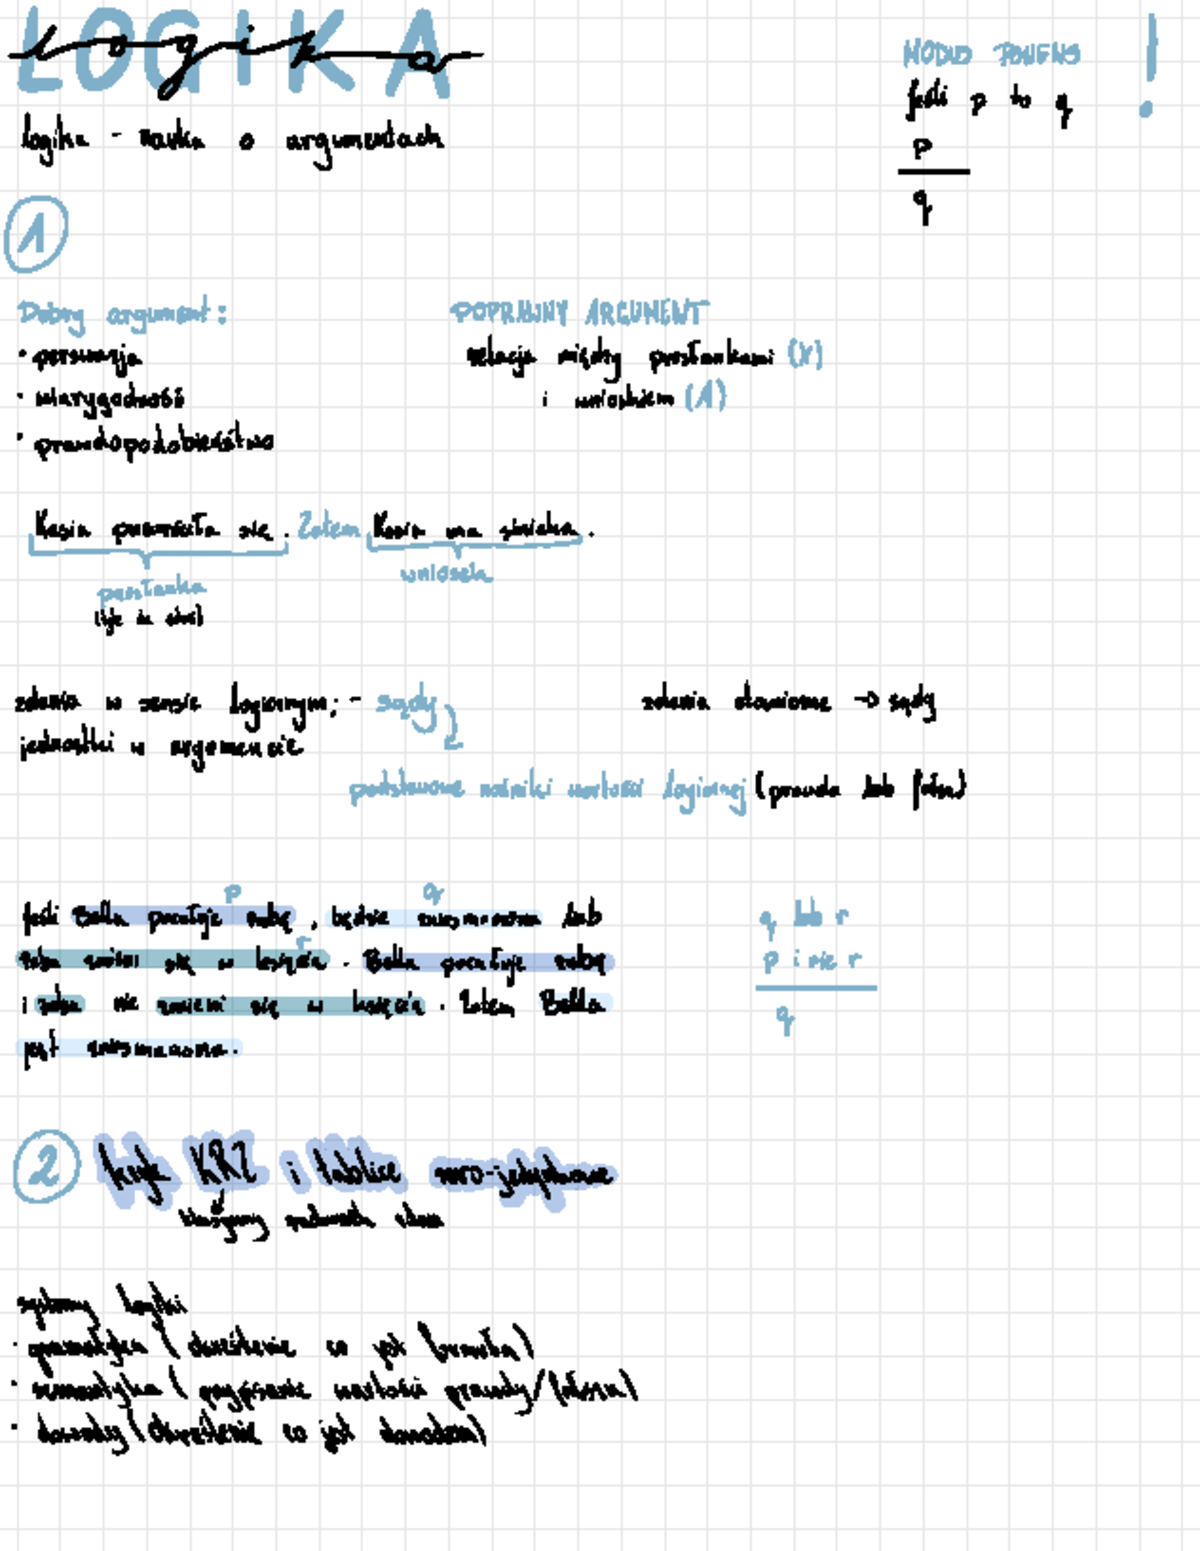 LOGIKA
logika
logika - nauka o argumentach
MODUS PONENS !
Jeśli p to q
p
q
1
Dobry argument:
• perswazja
• wiarygodność
• prawdopodobieństwo
POPRAWNY ARGUMENT
relacja między przesłankami (X)
i wnioskiem (A)
Kasia się. Zatem Kasia ma siniaka.
przesłanka
wniosek
zdania w sensie logicznym; - sądy
jednostki w argumencie
zdania stanowione → sądy
podstawowe nośniki wartości logicznej (prawda lub fałsz)
p q
Jeśli Bella pocałuje żabę, będzie zniesmaczona lub
r
żaba zmieni się w księcia. Bella pocałuje żabę
i żaba nie zmieni się w księcia. Zatem Bella
jest zniesmaczona.
q lub r
p i nie r
q
2 język KRZ i tablice zero-jedynkowe
klasyczny rachunek zdań
systemy logiki
• gramatyka (określenie co jest formułą)
• semantyka (przypisanie wartości prawdy/fałszu)
• dowody (określenie co jest dowodem)